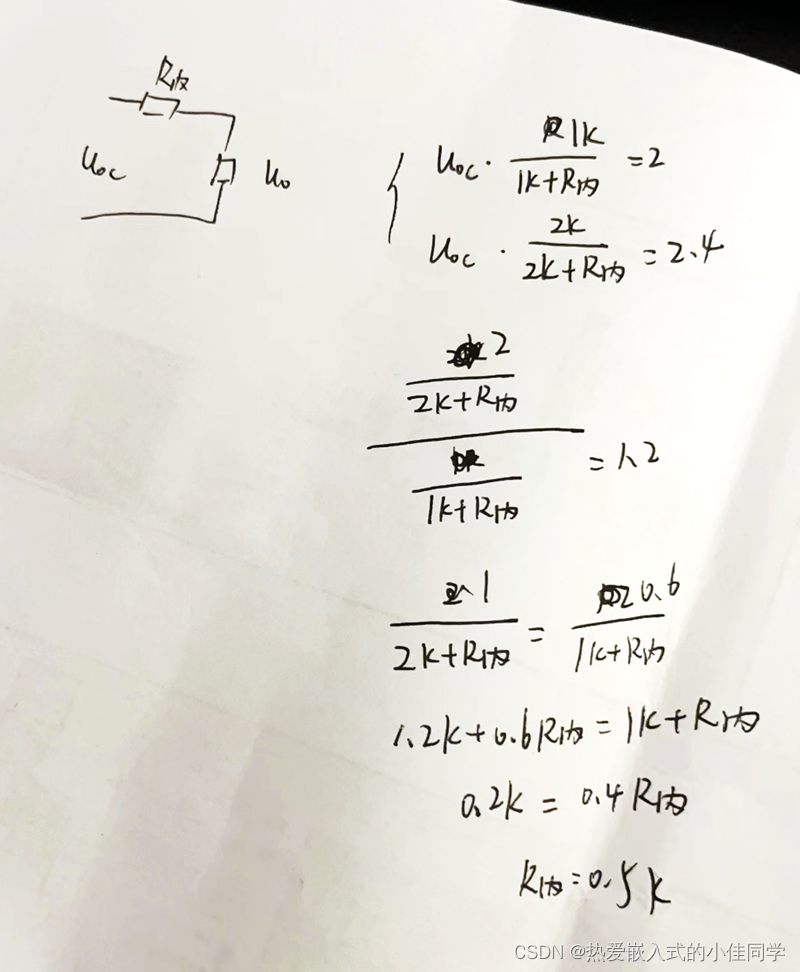 R内
Uoc
Uo
Uoc · 1k / (1k+R内) = 2
Uoc · 2k / (2k+R内) = 2.4
2 / (2k+R内)
/ (1k+R内) = 1.2
1 / (2k+R内) = 0.6 / (1k+R内)
1.2k+0.6R内 = 1k+R内
0.2k = 0.4R内
R内=0.5k
CSDN @热爱嵌入式的小佳同学